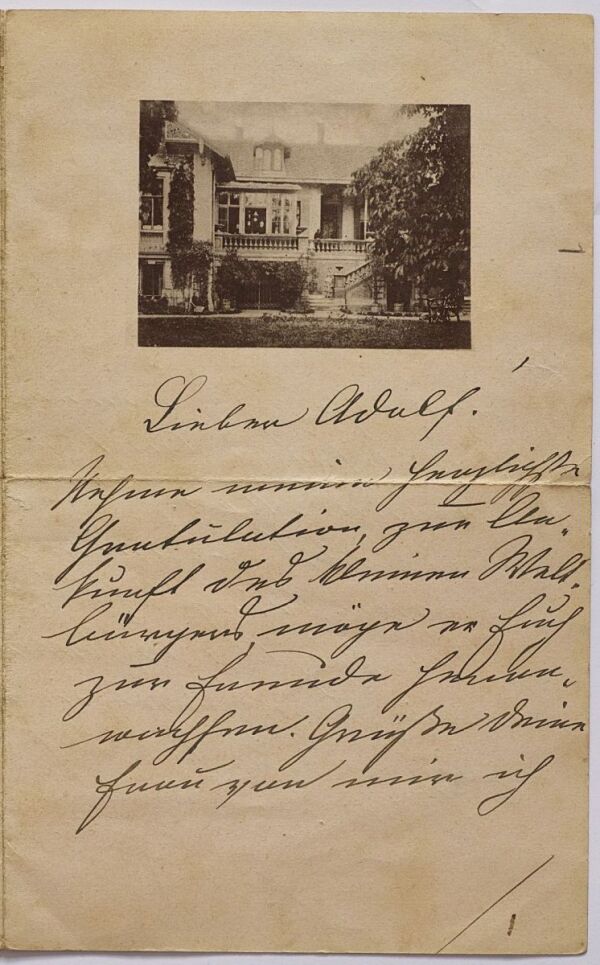 Lieber Adolf!
Nehme meine herzlichste
Gratulation, zur An-
kunft des kleinen Welt-
bürgers, möge er Euch
zur Freude heran-
wachsen. Grüße Deine
Frau von mir ich